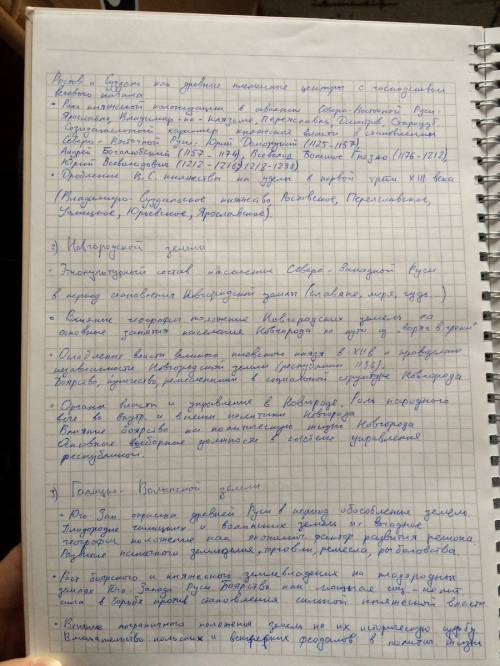 Ростов и Суздаль как древние племенные центры с господством
вечевого начала
• Роль княжеской колонизации в освоении Северо-Восточной Руси:
Ярославль, Владимир-на-Клязьме, Переяславль, Дмитров, Стародуб
Созидательный характер княжеской власти в становлении
Северо-Восточной Руси: Юрий Долгорукий (1125-1157),
Андрей Боголюбский (1157-1174), Всеволод Большое Гнездо (1176-1212),
Юрий Всеволодович (1212-1216, 1218-1238)
• Дробление В.С. княжества на уделы в первой трети XIII века
(Владимиро-Суздальское княжество, Ростовское, Переяславское,
Углицкое, Юрьевское, Ярославское).
2) Новгородской земли
• Этнокультурный состав населения Северо-Западной Руси
в период становления Новгородской земли (славяне, меря, чудь...)
• Влияние географ. положения Новгородских земель на
основные занятия населения Новгорода на пути из "варяг в греки"
• Ослабление власти великого киевского князя в XII в и провозглаш.
независимости Новгородской земли (республики 1136).
Боярство, купечество, ремесленники в социальной структуре Новгорода
• Органы власти и управления в Новгороде. Роль народного
вече во внутр. и внешн. политике Новгорода
Влияние боярства на политическую жизнь Новгорода
Основные выборные должности в системе управления
республикой.
3) Галицко-Волынской земли
• Юго-Зап. окраина древней Руси в период обособления земель.
Плодородие галицких и волынских земель их выгодное
географич. положение как экономич. фактор развития региона
Развитие пашенного земледелия, торговли, ремесла, рыболовства.
• Рост боярского и княжеского землевладения на плодородных
землях Юго Запада Руси. Боярство как мощная соц-полит
сила в борьбе против становления сильной княжеской власти.
• Влияние пограничного положения земель на их историческую судьбу
Вмешательство польских и венгерских феодалов в политич. жизнь